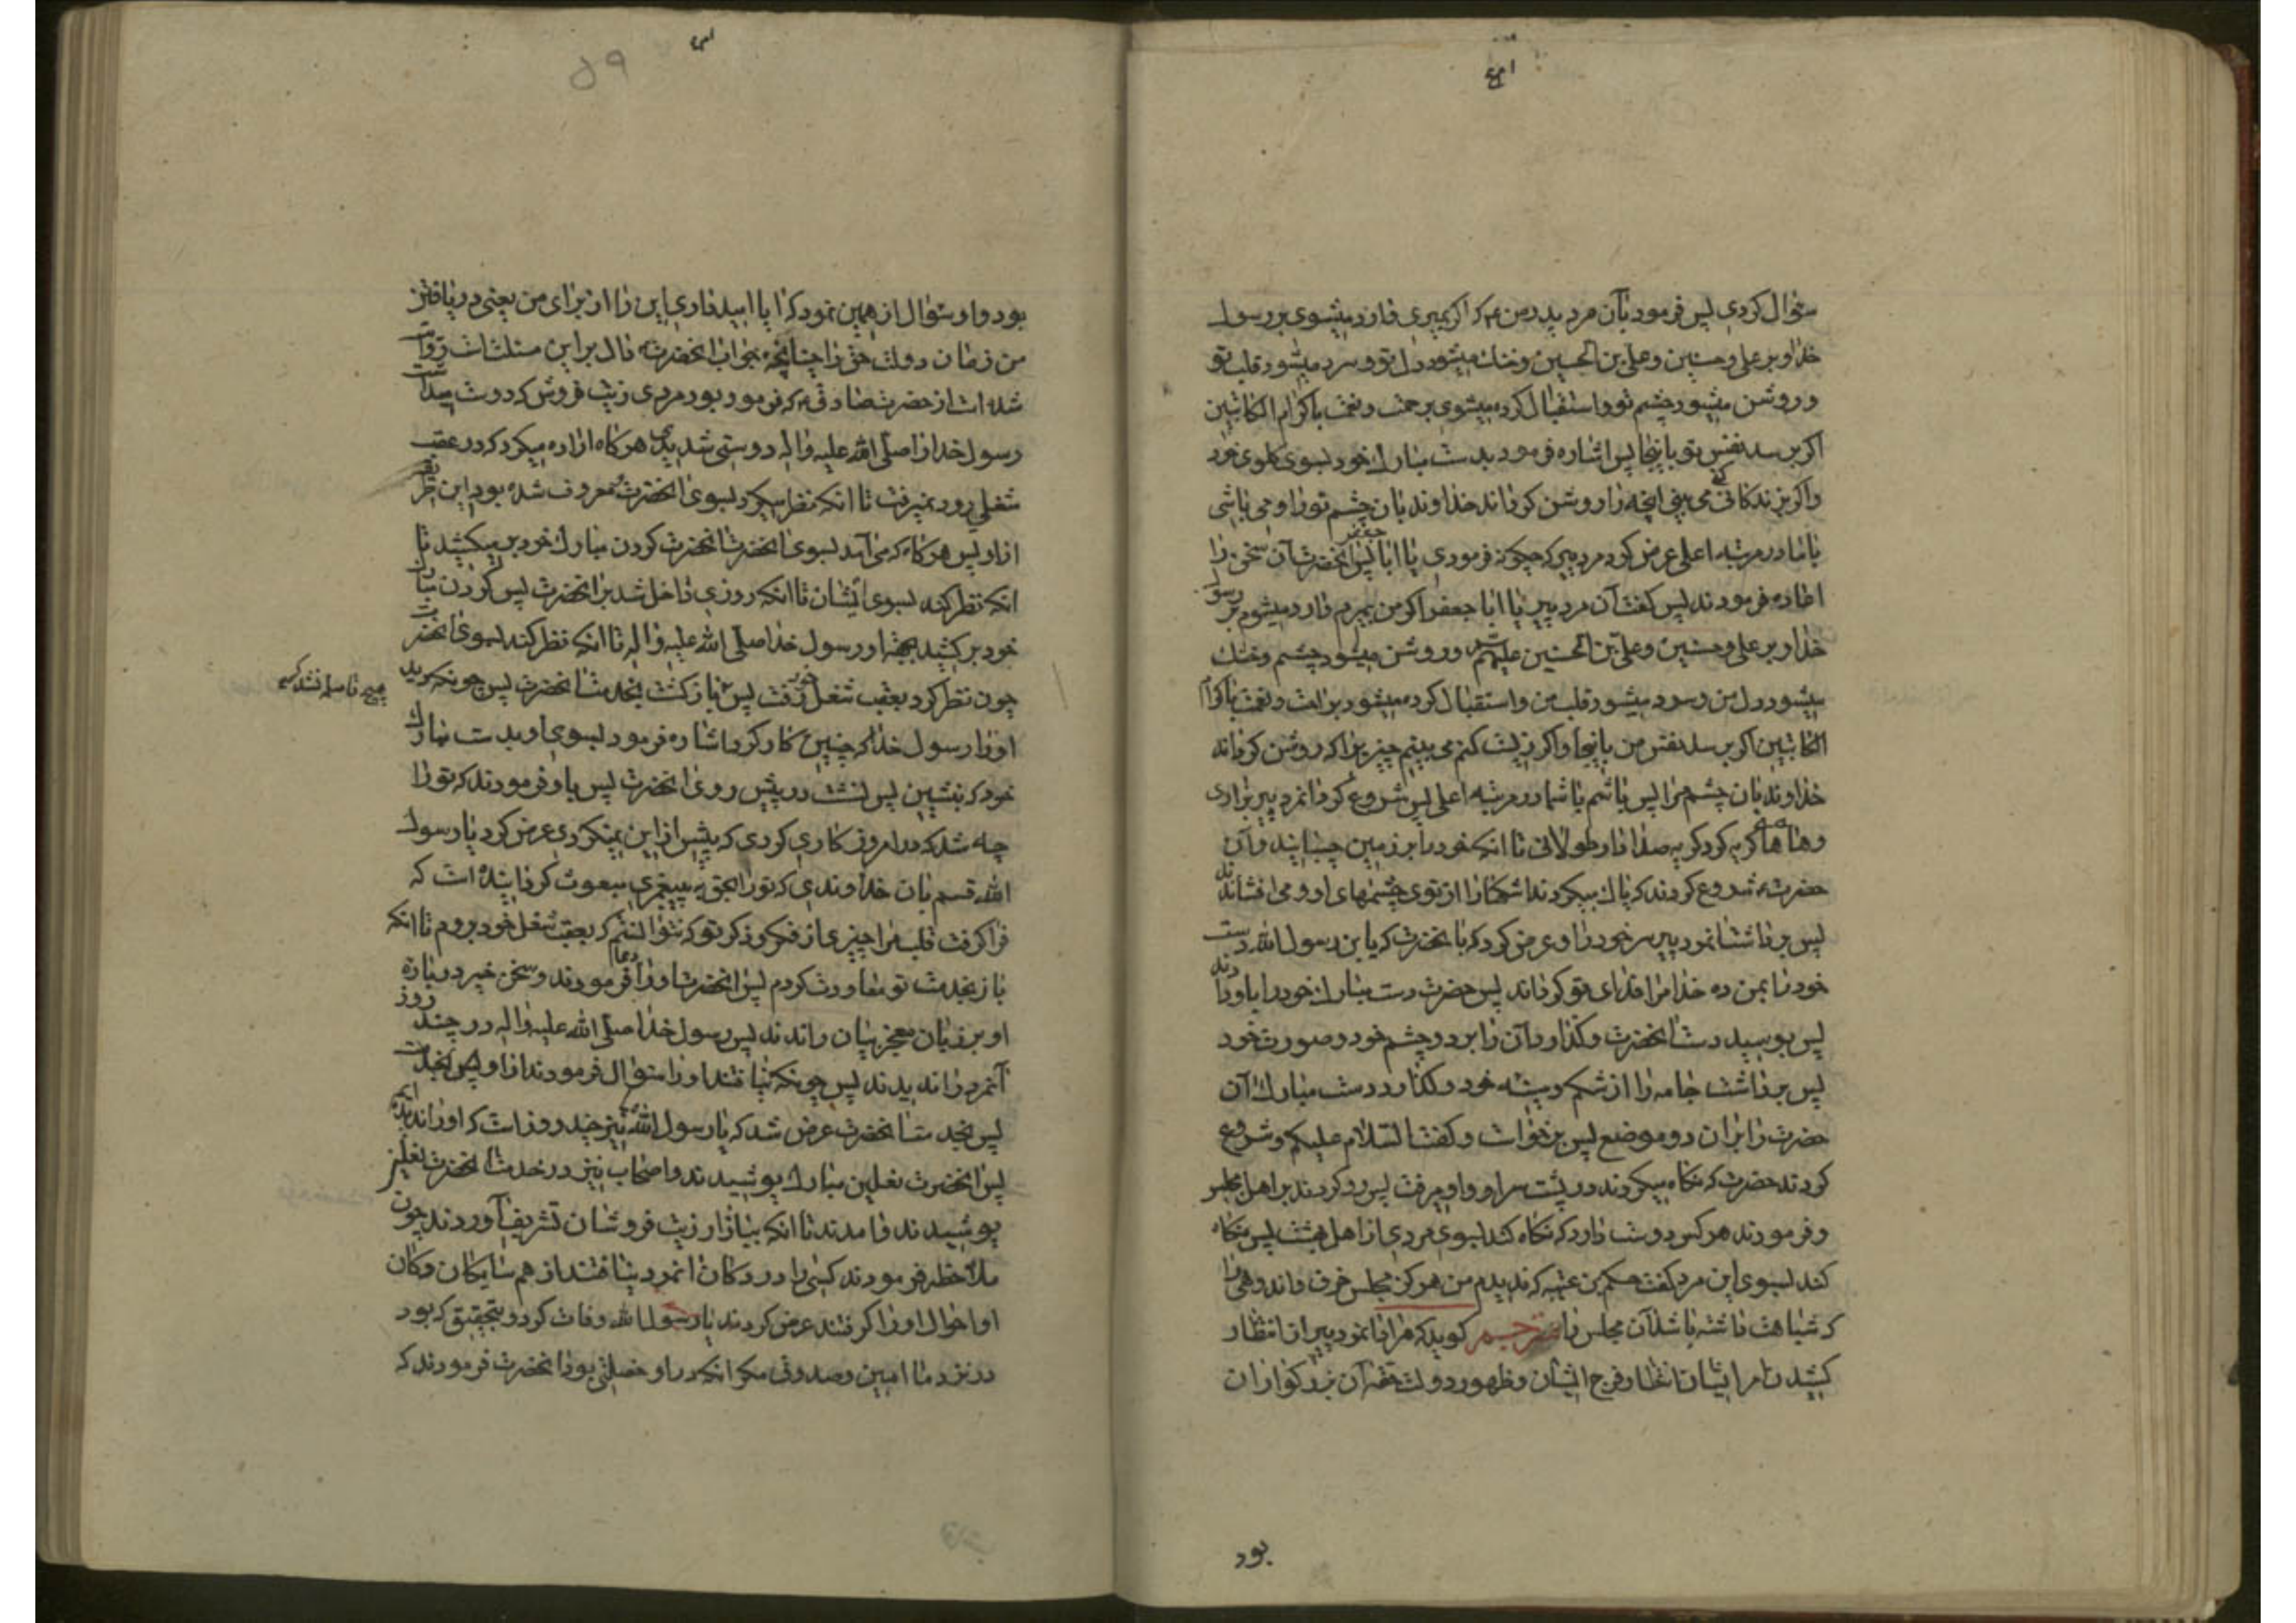 سئوال کردی پس فرمود بآن مرد پدر من ع که اگر بمیری وارد میشوی بر رسول
خدا و بر علی و حسنین و علی بن الحسین و خنک میشود دل تو و سرد میشود قلب تو
و روشن میشود چشم تو و استقبال کرده میشوی برحمت و نعمت با کرام الکاتبین
اگر برسد نفس تو باینجا پس اشاره فرمود بدست مبارک خود بسوی گلوی خود
و اگر زندگانی کنی می بینی آنچه را روشن گرداند خداوند بآن چشم تو را و می باشی
با ما در مرتبه اعلی عرض کرد مرد پیر که چگونه فرمودی یا ابا جعفر پس آنحضرت آن سخن را
اعاده فرمودند پس گفت آن مرد پیر یا ابا جعفر اگر من بمیرم وارد میشوم بر رسول
خدا و بر علی و حسنین و علی بن الحسین علیهم و روشن میشود چشم و خنک
میشود دل من و سرد میشود قلب من و استقبال کرده میشود برافت و نعمت با کرام
الکاتبین اگر برسد نفس من باینجا و اگر زیست کنم می بینم چیزیرا که روشن گرداند
خداوند بآن چشم مرا پس باشم با شما در مرتبه اعلی پس شروع کرد آنمرد پیر بزاری
و هاها گریه کرد گریه صدادار طولانی تا آنکه خود را بر زمین چسبانید و آن
حضرت ع شروع کردند که پاک میکردند اشکها را از توی چشمهای او و می افشاندند
پس برداشت آنمرد پیر سر خود را و عرض کرد که بآنحضرت که یابن رسول الله دست
خود را بمن ده خدا مرا فدای تو گرداند پس حضرت دست مبارک خود را باو دادند
پس بوسید دست آنحضرت و گذارد آن را بر دو چشم خود و صورت خود
پس برداشت جامه را از شکم و سینه خود و گذارد دست مبارک آن
حضرت را بر آن دو موضع پس برخواست و گفت السلام علیکم و شروع
کردند حضرت که نگاه میکردند در پشت سر او و او میرفت پس رو کردند بر اهل مجلس
و فرمودند هر کس دوست دارد که نگاه کند بسوی مردی از اهل بهشت پس نگاه
کند بسوی این مرد گفت حکم بن عتیبه که ندیدم من هرگز مجلس حزن و اندوهی را
که شباهت داشته باشد آن مجلس را مترجم گوید که مراد آنمرد پیر از انتظار
کشیدن امر ایشان انتظار فرج ایشان و ظهور دولت حقه آن بزرگواران
بود
بود و او سئوال از همین نمود که آیا امید داری این را از برای من یعنی دریافتن
من زمان دولت حق را چنانچه جواب آنحضرت ع دال بر این مسئلت است روایت
شده است از حضرت صادق ع که فرمود بود مردی زیت فروش که دوست میداشت
رسول خدا را صلی الله علیه و اله دوستی شدیدی هر گاه اراده میکرد که در عقب
شغلی رود نمیرفت تا آنکه نظر میکرد بسوی آنحضرت معروف شده بود این
از او پس هر گاه که می آمد بسوی آنحضرت آنحضرت گردن مبارک خود برمیکشید تا
آنکه نظر کند بسوی ایشان تا آنکه روزی داخل شد بر آنحضرت پس گردن مبارک
خود بر کشید بجهة او رسول خدا صلی الله علیه و اله تا آنکه نظر کند بسوی آنحضرت
چون نظر کرد بعقب شغل خود رفت پس باز گشت بخدمت آنحضرت پس چونکه دید
هیچ فاصله نشد که
او را رسول خدا که چنین کار کرد اشاره فرمود بسوی او بدست مبارک
خود که بنشین پس نشست در پیش روی آنحضرت پس باو فرمودند که تو را
چه شد که در امروز کاری کردی که پیش از این نمیکردی عرض کرد یا رسول
الله قسم بآن خداوندی که تو را بحق به پیغمبری مبعوث گردانیده است که
فرا گرفت قلب مرا چیزی از فکر و ذکر تو که نتوانستم که بعقب شغل خود بروم تا آنکه
باز بخدمت تو معاودت کردم پس آنحضرت او را دعا فرمودند و سخن خیر درباره
او بر زبان معجز بیان راندند پس رسول خدا صلی الله علیه و اله در چند روز
آنمرد را ندیدند پس چونکه نیافتند او را سئوال فرمودند از او
پس بخدمت آنحضرت عرض شد که یا رسول الله نیز چند روز است که او را ندیده ایم
پس آنحضرت نعلین مبارک پوشیدند و اصحاب نیز در خدمت آنحضرت نعلین
پوشیدند و آمدند تا آنکه ببازار زیت فروشان تشریف آوردند چون
ملاحظه فرمودند کسی را در دکان آنمرد نیافتند از همسایگان دکان
او احوال او را گرفتند عرض کردند یا رسول الله وفات کرد و بتحقیق که بود
در نزد ما امین و صدوق مگر آنکه در او خصلتی بود آنحضرت فرمودند که